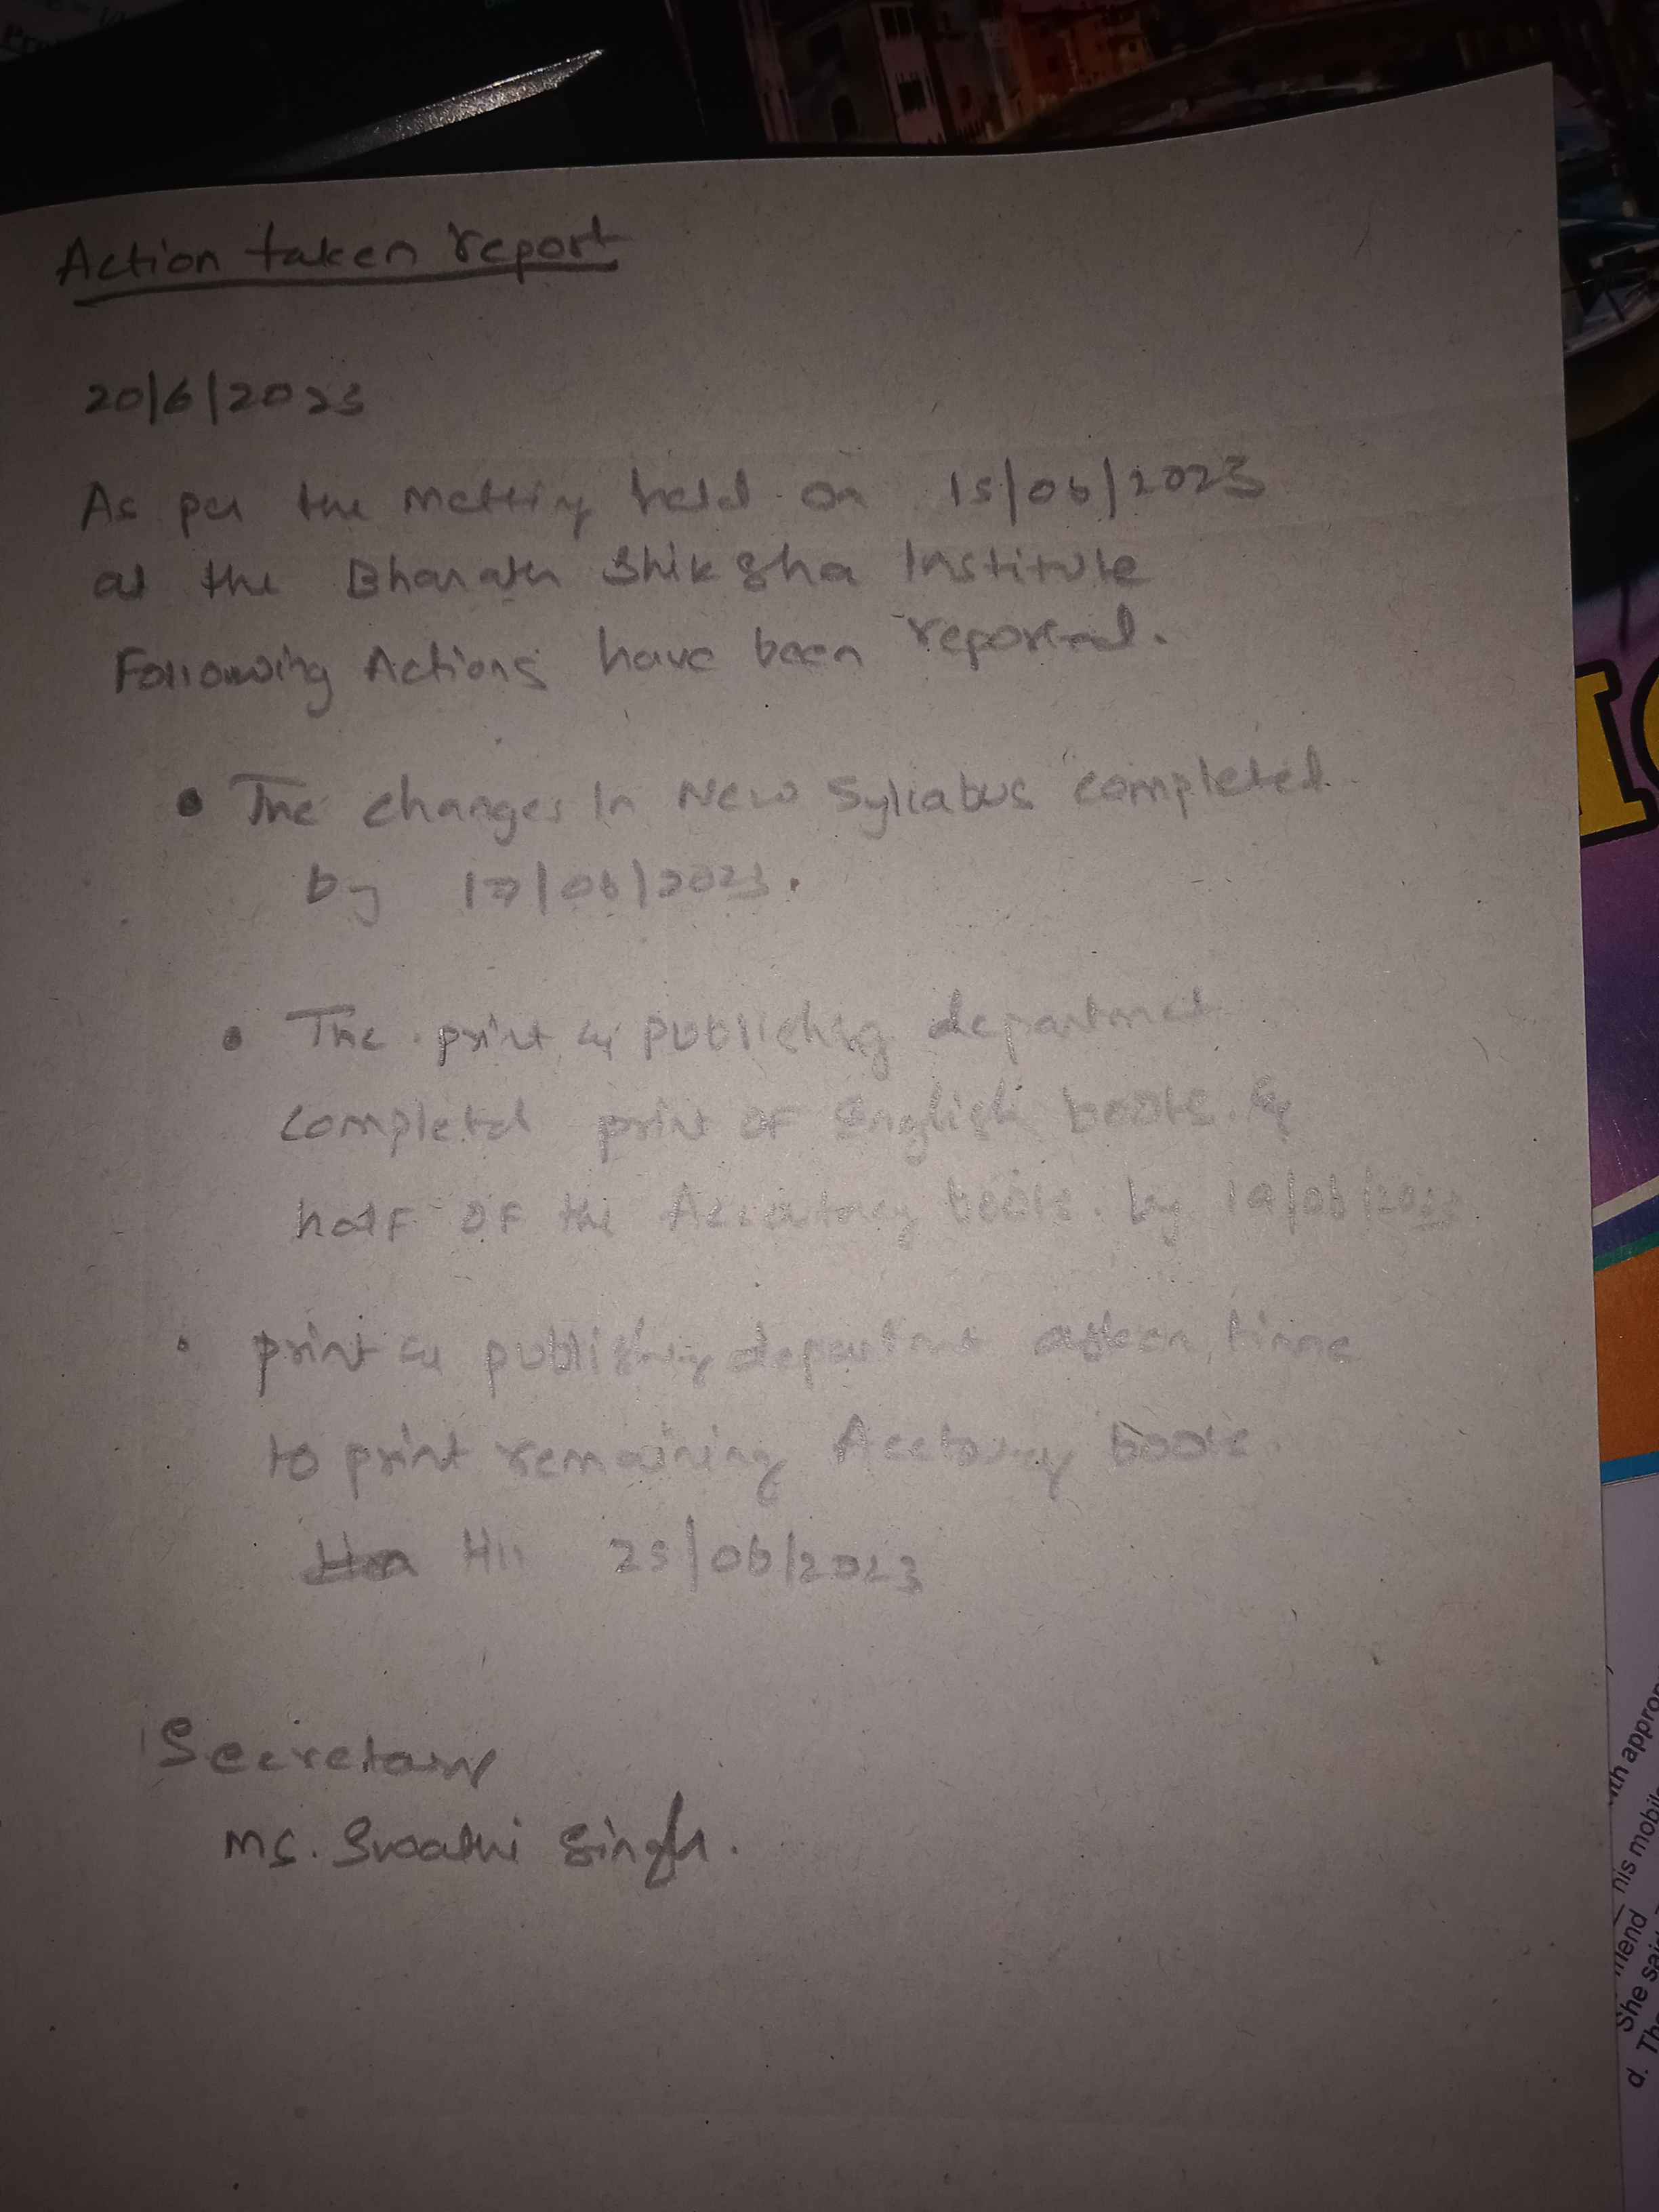 Action taken report
20/6/2023
As per the Metting held on 15/06/2023
at the Bharath Shiksha Institute
Following Actions have been reported.
• The changes In New Syllabus completed
by 17/06/2023.
• The print & publishing department
completed print of English books. &
half of the books. by 19/06/2023
• print & publishing department time
to print remaining books
till 25/06/2023
Secretary
Ms. Swathi Singh.
IC
with approp
his mobile
friend
She said
d. Th